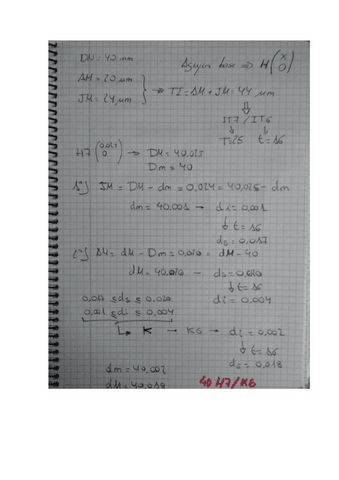 DN = 40 mm
Agujero base ⇒ H(x/0)
AM = 20 µm
JM = 24 µm
→ TI = AM + JM = 44 µm
IT7 / IT6
T=25 t=16
H7 (0,025/0) → DM = 40,025
Dm = 40
1º) JM = DM - dm = 0,024 = 40,025 - dm
dm = 40,001 → di = 0,001
↓ t = 16
ds = 0,017
AM = dM - Dm = 0,020 = dM - 40
dM = 40,020 - ds = 0,020
↓ t = 16
di = 0,004
0,017 ≤ ds ≤ 0,020
0,001 ≤ di ≤ 0,004
↳ K → K6 → di = 0,002
↓ t = 16
ds = 0,018
dm = 40,002
dM = 40,018
40 H7/K6